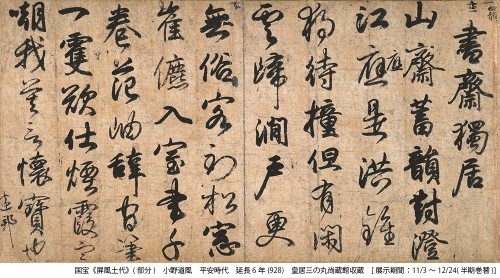 書齋獨居
山齋蓄韻對澄
江應是洪鐘
獨待撞但有閑
雲歸澗戸更
無俗客到松窓
崔儦入室書千
卷范岫辞官筆
一雙欲仕煙霞
嘲我莫言懷寶也
迷邦
国宝《屏風土代》(部分) 小野道風 平安時代 延長6年(928) 皇居三の丸尚蔵館収蔵 [展示期間：11/3～12/24(半期巻替)]